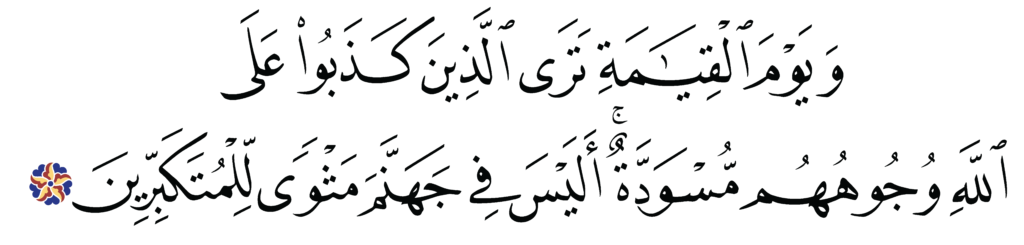 وَيَوْمَ ٱلْقِيَـٰمَةِ تَرَى ٱلَّذِينَ كَذَبُوا۟ عَلَى
ٱللَّهِ وُجُوهُهُم مُّسْوَدَّةٌ ۚ أَلَيْسَ فِى جَهَنَّمَ مَثْوًى لِّلْمُتَكَبِّرِينَ